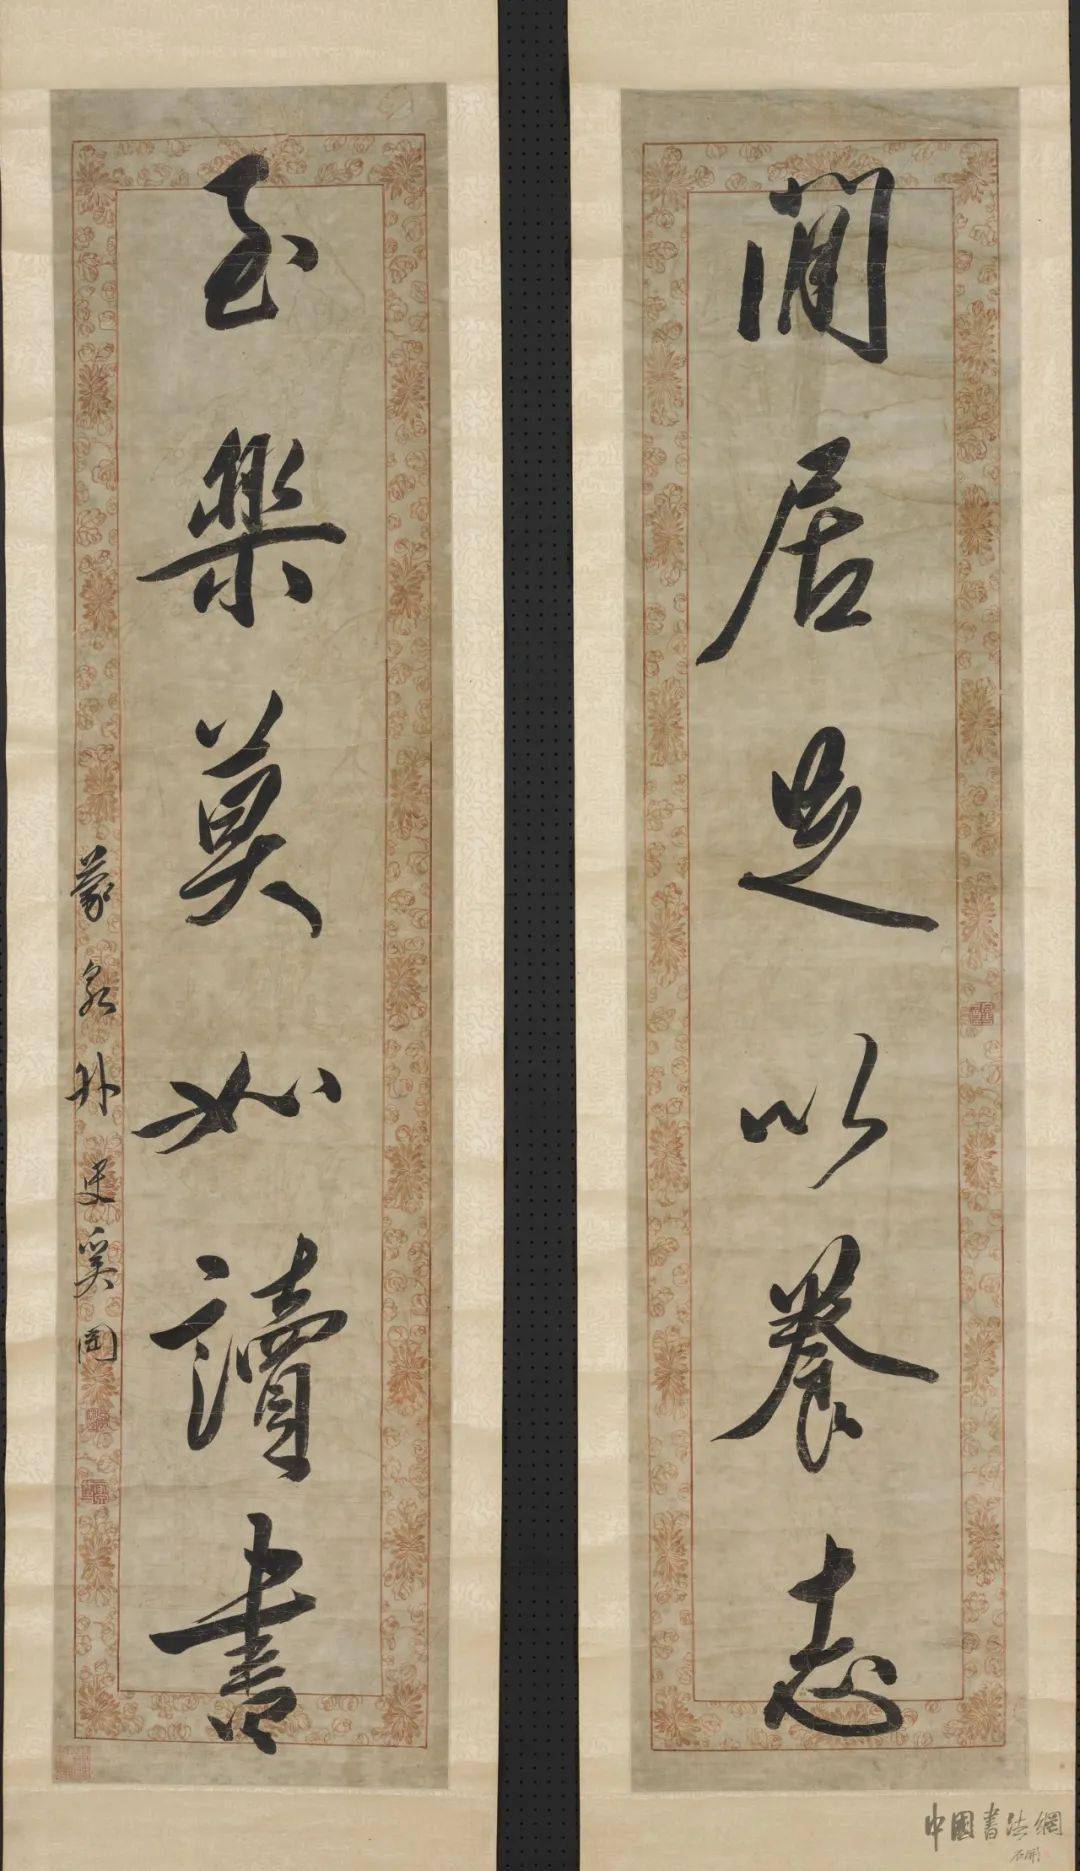 閒居足以養志
至樂莫如讀書
蒙泉外史奚岡
中國書法網